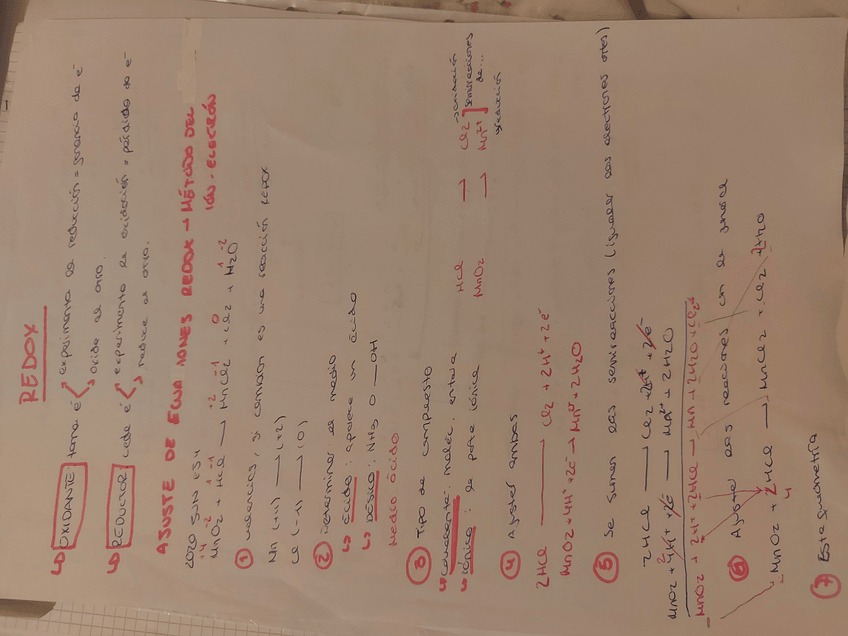 REDOX
↳ OXIDANTE toma é → experimenta la reducción = ganancia de é
↘ oxida al otro.
↳ REDUCTOR cede é → experimenta la oxidación = pérdida de é
↘ reduce al otro.
AJUSTE DE ECUACIONES REDOX → MÉTODO DEL
IÓN-ELECTRÓN
2020 JUN
+4 -2 +1 -1 +2 -1 0 +1 -2
MnO2 + HCl → MnCl2 + Cl2 + H2O
① valencias, si cambian es una reacción redox
Mn (+4) → (+2)
Cl (-1) → (0)
② Determinar el medio
↳ ácido: aparece un ácido
↳ básico: NH3 o —OH
Medio ácido
③ Tipo de compuesto
↳ covalente: moléc. entera
↳ iónico: la parte iónica
HCl → Cl2 oxidación
MnO2 → Mn2+ semireacciones de...
reducción
④ Ajustar ambas
2HCl → Cl2 + 2H+ + 2é
MnO2 + 4H+ + 2é → Mn2+ + 2H2O
⑤ Se suman las semireacciones (igualar los electrones antes)
2HCl → Cl2 + 2H+ + 2é
MnO2 + 4H+ + 2é → Mn2+ + 2H2O
2
MnO2 + 2H+ + 2HCl → Mn + 2H2O + Cl2
⑥ Ajustar las reacciones en la general
MnO2 + 2HCl → MnCl2 + Cl2 2H2O
4
⑦ Estequiometría